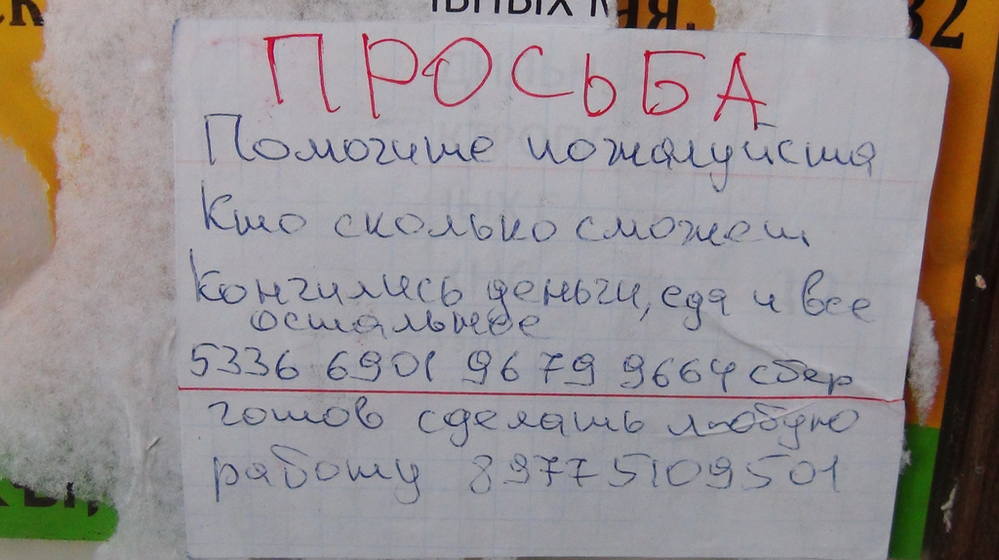 ЬНЫХ
АЯ.
32
ПРОСЬБА
Помогите пожалуйста
Кто сколько сможет
Кончились деньги, еда и все
остальное
5336 6901 9679 9664 сбер
готов сделать любую
работу 89775109501